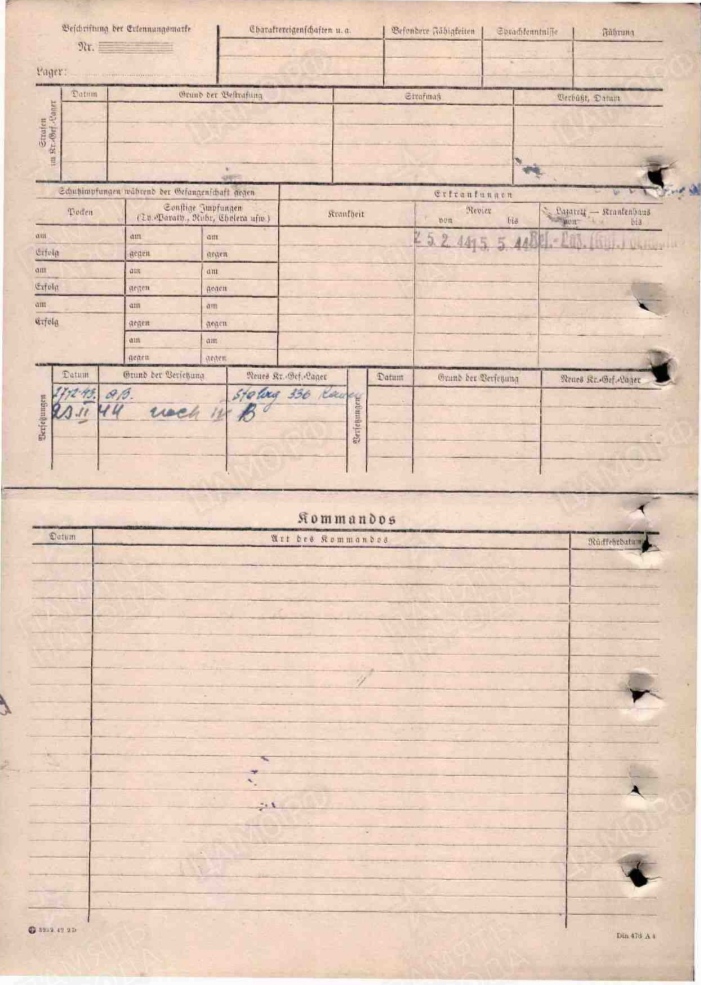 Beschriftung der Erkennungsmarke
Nr.
Lager:
Charaktereigenschaften u. a.
Besondere Fähigkeiten
Sprachkenntnisse
Führung
Strafen im Kr.-Gef.-Lager
Datum
Grund der Bestrafung
Strafmaß
Verbüßt, Datum
Schutzimpfungen während der Gefangenschaft gegen
Erkrankungen
Pocken
Sonstige Impfungen
(Ty.-Paraty., Ruhr, Cholera usw.)
Krankheit
Revier
von bis
Lazarett — Krankenhaus
von bis
am am am
Erfolg gegen gegen
25. 2. 44 15. 5. 44
am am am
Erfolg gegen gegen
am am am
Erfolg gegen gegen
am am
gegen gegen
Versetzungen
Datum Grund der Versetzung Neues Kr.-Gef.-Lager
Datum Grund der Versetzung Neues Kr.-Gef.-Lager
Stalag 336
nach IV B
Versetzungen
Kommandos
Datum Art des Kommandos Rückkehrdatum
Din 476 A 4
ПАМЯТЬ НАРОДА
ЦАМО РФ